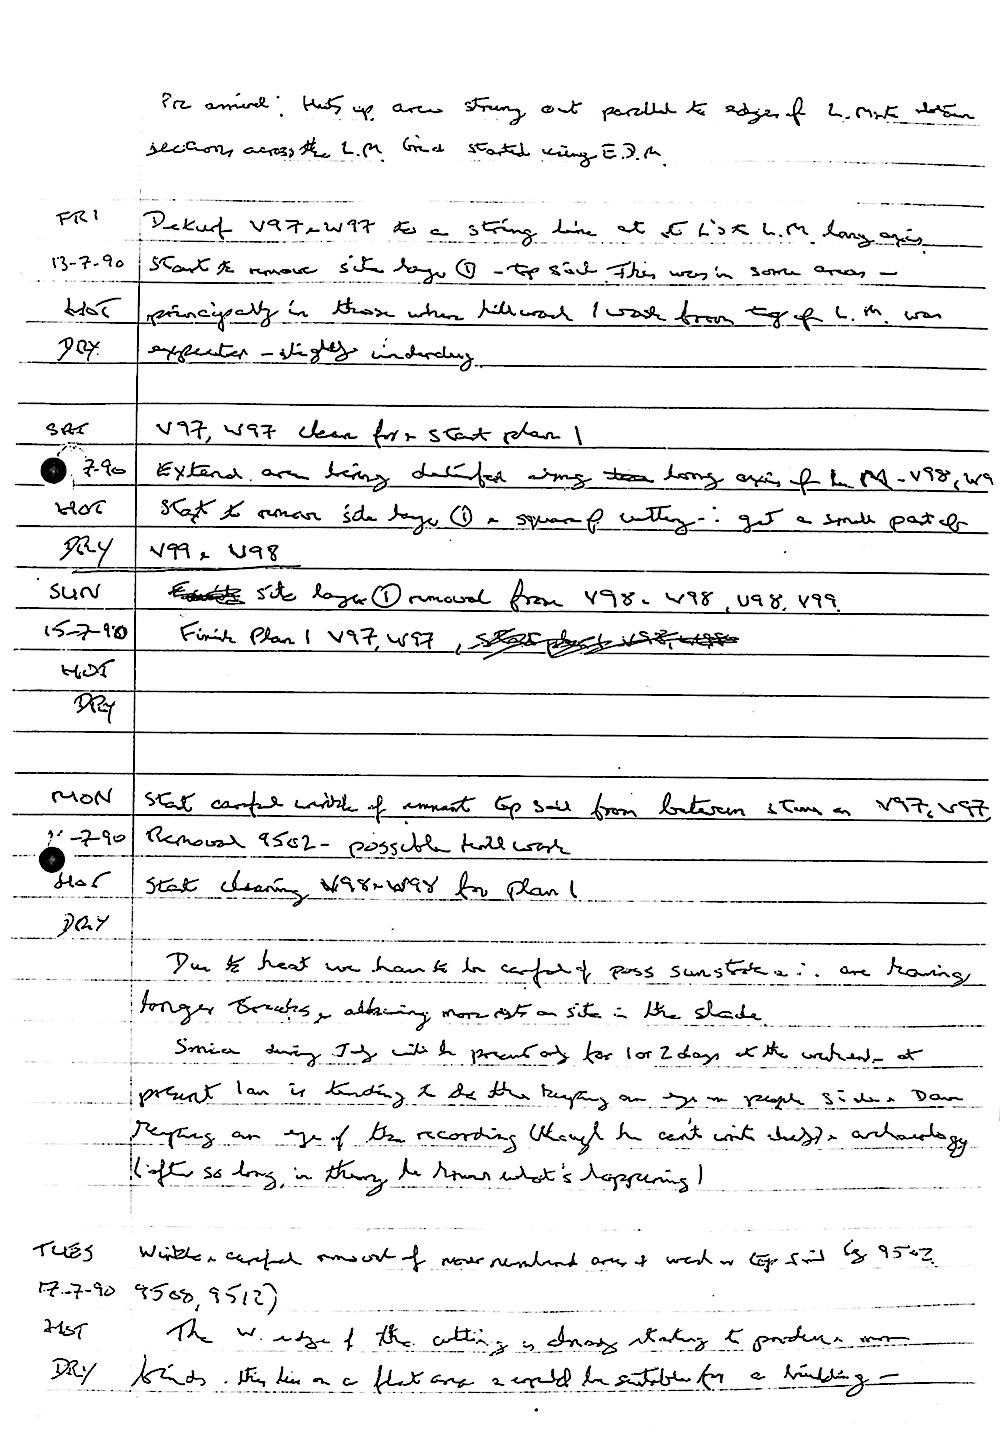 Pre arrival: Huts up, area strung out parallel to edges of L.M. to obtain
sections across the L.M. Grid started using E.D.M.
FRI Deturf V97 & W97 to a string line at rt L's to L.M. long axis
13-7-90 Start to remove site layer ① - top soil. This was in some areas -
HOT principally in those where hillwash / wash from top of L.M. was
DRY expected - slightly undercling
SAT V97, W97 clean for & start plan 1
7-90 Extend area being deturfed along long axis of L.M. - V98, W9
HOT Start to remove site layer ① & square of cutting ∴ get a small part of
DRY V99 & U98
SUN site layer ① removed from V98 & W98, U98, V99.
15-7-90 Finish Plan 1 V97, W97, start plan 1 V98, W98
HOT
DRY
MON Start careful winkle of remnant top soil from between stones on V97, W97
-7-90 Removal 9502 - possible hillwash
HOT Start cleaning V98 & W98 for plan 1
DRY
Due to heat we have to be careful of poss sunstroke & ∴ are having
longer breaks, & allowing more rests on site in the shade.
during July will be present only for 1 or 2 days at the weekend - at
present Ian is tending to do the keeping an eye on people side & Dave
keeping an eye of the recording (though he can't write ) & archaeology
(after so long, in theory he knows what's happening!)
TUES Winkle & careful removal of top soil (eg 9502
17-7-90 9508, 9512)
HOT The W. edge of the cutting is already starting to produce more
DRY finds. this lies on a flat area & could be suitable for a building -